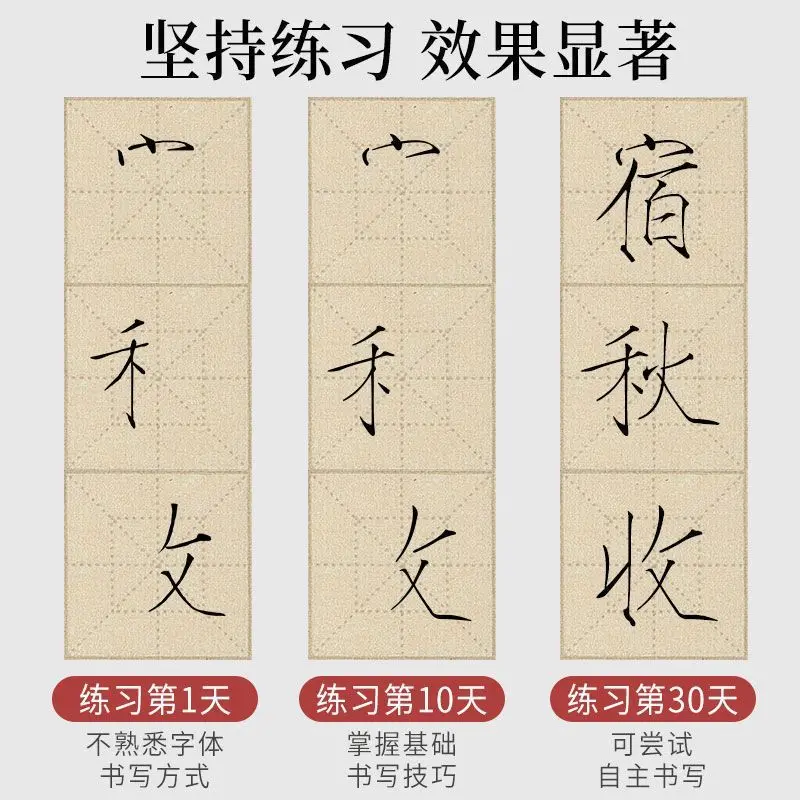 坚持练习 效果显著
宀
禾
攵
练习第1天
不熟悉字体
书写方式
宀
禾
攵
练习第10天
掌握基础
书写技巧
宿
秋
收
练习第30天
可尝试
自主书写